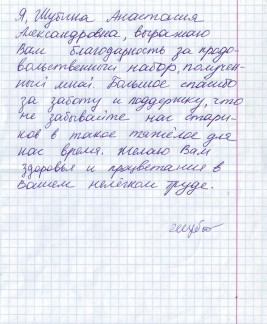 Я, Шубина Анастасия
Александровна, выражаю
Вам благодарность за продо-
вольственный набор, получен-
ный мной. Большое спасибо
за заботу и поддержку, что
не забывайте нас стари-
ков в такое тяжёлое для
нас время. Желаю Вам
здоровья и процветания в
Вашем нелёгком труде.